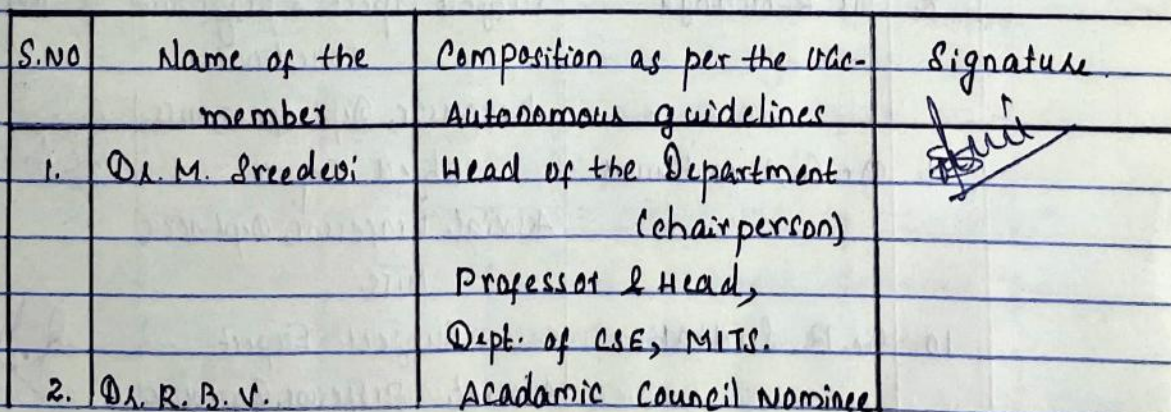 S.NO Name of the Composition as per the UGC- Signature
member Autonomous guidelines
1. Dr. M. Sreedevi Head of the Department
(chairperson)
Professor & Head,
Dept. of CSE, MITS.
2. Dr. R. B. V. Acadamic Council Nominee